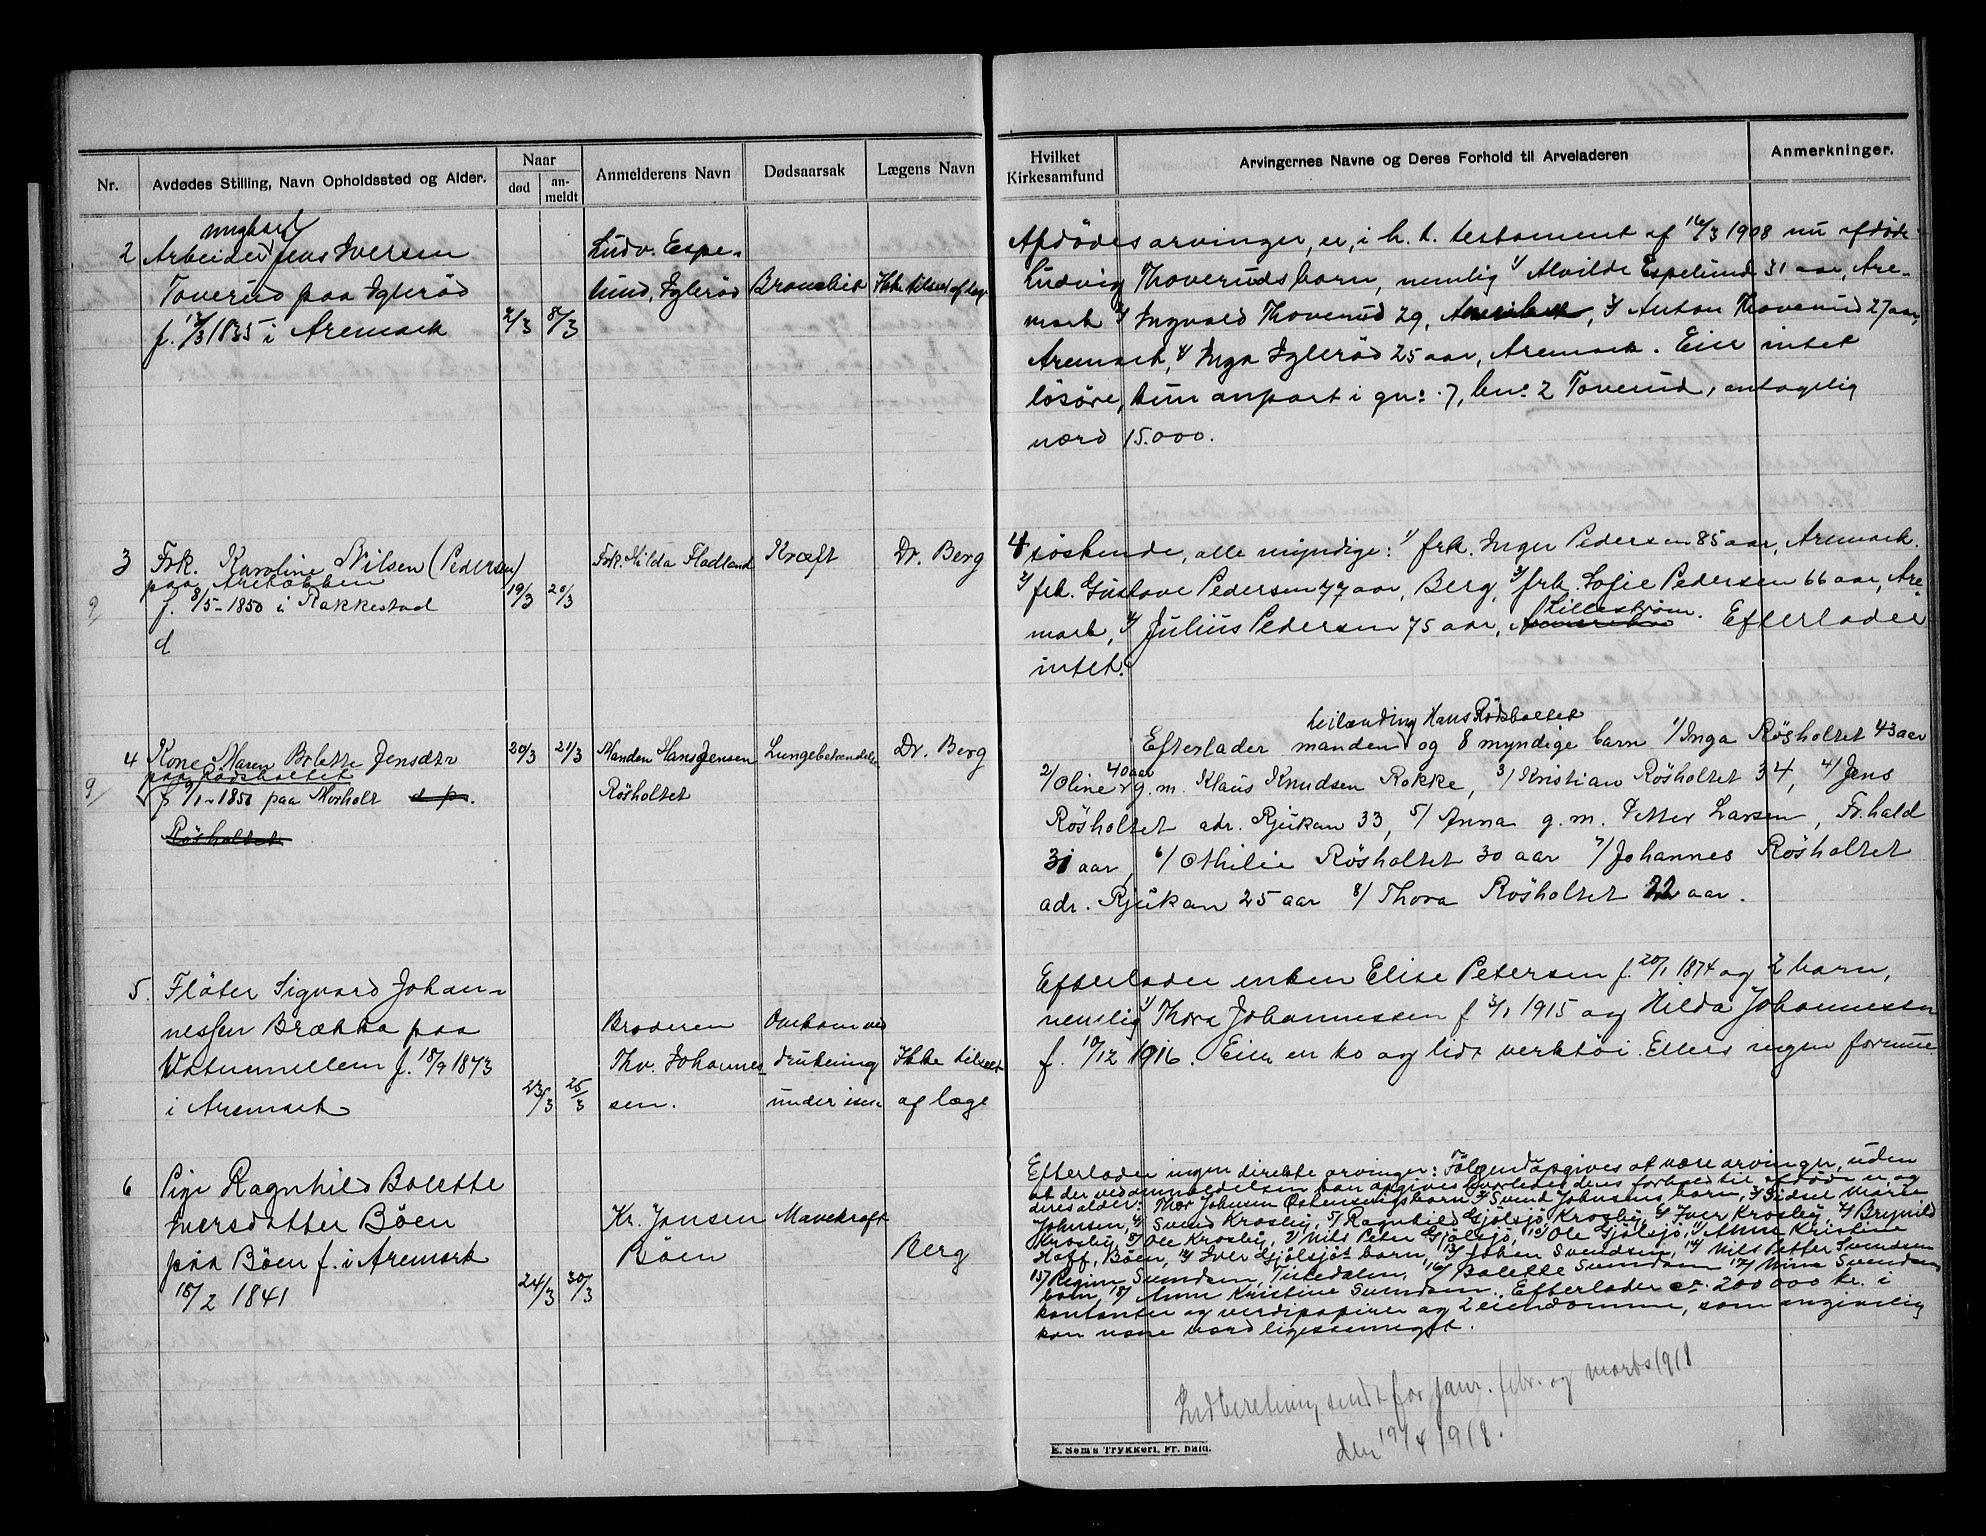 Nr.
Avdødes Stilling, Navn Opholdssted og Alder.
Naar
død
an-
meldt
Anmelderens Navn
Dødsaarsak
Lægens Navn
Hvilket
Kirkesamfund
Arvingernes Navne og Deres Forhold til Arveladeren
Anmerkninger.
ungkarl
2 Arbeider Jens Iversen
Toverud paa Iglerød
f. 12/3 1835 i Aremark
2/3 8/3
Ludv. Espe-
lund, Iglerød
Bronchit
Ikke tilseet af læge
Afdødes arvinger, er, i h. t. testament af 16/3 1908 nu afdøde
Ludvig Thoveruds barn, nemlig 1/ Alvilde Espelund 31 aar, Are-
mark 2/ Ingvald Thoverud 29, Amerika, 3/ Anton Thoverud 27 aar,
Aremark, 4/ Inga Iglerød 25 aar, Aremark. Eier intet
løsøre, kun anpart i gn: 7, bn: 2 Toverud, antagelig
værd 15.000.
3 Frk. Karoline Nilsen (Pedersen)
paa
f. 8/5-1850 i Rakkestad
d
9
19/3 20/3
Frk. Hilda Fladland
Kræft
Dr. Berg
4 søskende, alle myndige: 1/ frk. Inger Pedersen 85 aar, Aremark.
2/ frk. Gustave Pedersen 77 aar, Berg, 3/ frk. Sofie Pedersen 66 aar, Are-
Lillestrøm.
mark, 4/ Julius Pedersen 75 aar, Amerika. Efterlader
intet.
4 Kone Maren Bolette Jensdtr
paa Rødsholtet
f 9/1-1850 paa Norholt
Røsholtet
9
20/3 21/3
Manden Hans Jensen
Røsholtet
Lungebetændelse
Dr. Berg
leilænding Hans Rødsholtet
Efterlader manden og 8 myndige barn 1/ Inga Røsholtet 43 aar
40 aar
2/ Oline g. m. Klaus Knudsen Rokke, 3/ Kristian Røsholtet 34, 4/ Jens
Røsholtet adr. Rjukan 33, 5/ Anna g. m. Petter Larsen, Fr.hald
31 aar, 6/ Othilie Røsholtet 30 aar 7/ Johannes Røsholtet
adr. Rjukan 25 aar 8/ Thora Røsholtet 22 aar.
5. Fløter Sigvard Johan-
nessen Brækka paa
f. 18/9 1873
i Aremark
23/3 25/3
Broderen
Thv. Johannes-
sen.
Omkom ved
drukning
under isen
Ikke tilseet
af læge
Efterlader enken Elise Petersen f. 20/1 1874 og 2 barn,
nemlig 1/ Thora Johannessen f 3/1 1915 og Hilda Johannessen
f. 10/12 1916. Eier en ko og lidt verktøi. Ellers ingen formue
6 Pige Ragnhild Bolette
Iversdatter Bøen
paa Bøen f. i Aremark
18/2 1841
24/3 30/3
Kr. Jensen
Bøen
Mavekræft
Berg
Efterlader ingen direkte arvinger: Følgende opgives at være arvinger, uden
at der ved anmeldelsen kan opgives hvorledes deres forhold til afdøde er, og
deres alder: Thor Johnsen Østensvigs barn, 2/ Svend Johnsens barn, 3/ Sidsel Marie
Johnsen, 4/ Svend Krosby, 5/ Ragnhild Gjølsjø Krosby, 6/ Iver Krosby, 7/ Brynild
Krosby, 8/ Ole Krosby, 9/ Nils Peter Gjølsjø, 10/ Ole Gjølsjø, 11/ Anne Kristine
Hoff, Bøen, 12/ Iver Gjølsjøs barn, 13/ Johan Svendsen, 14/ Nils Petter Svendsen
15/ Svendsen, Tistedalen, 16/ Bolette Svendsen 17/ Svendsens
barn, 18/ Anne Kristine Svendsen. Efterlader ca. 200000 kr. i
kontanter og verdipapirer og 2 eiendomme, som angivelig
kan være værd ligesaameget.
Indberetning sendt for janr. febr. og marts 1918
den 19/4 1918.
E. Sem's Trykkeri, Fr.hald.